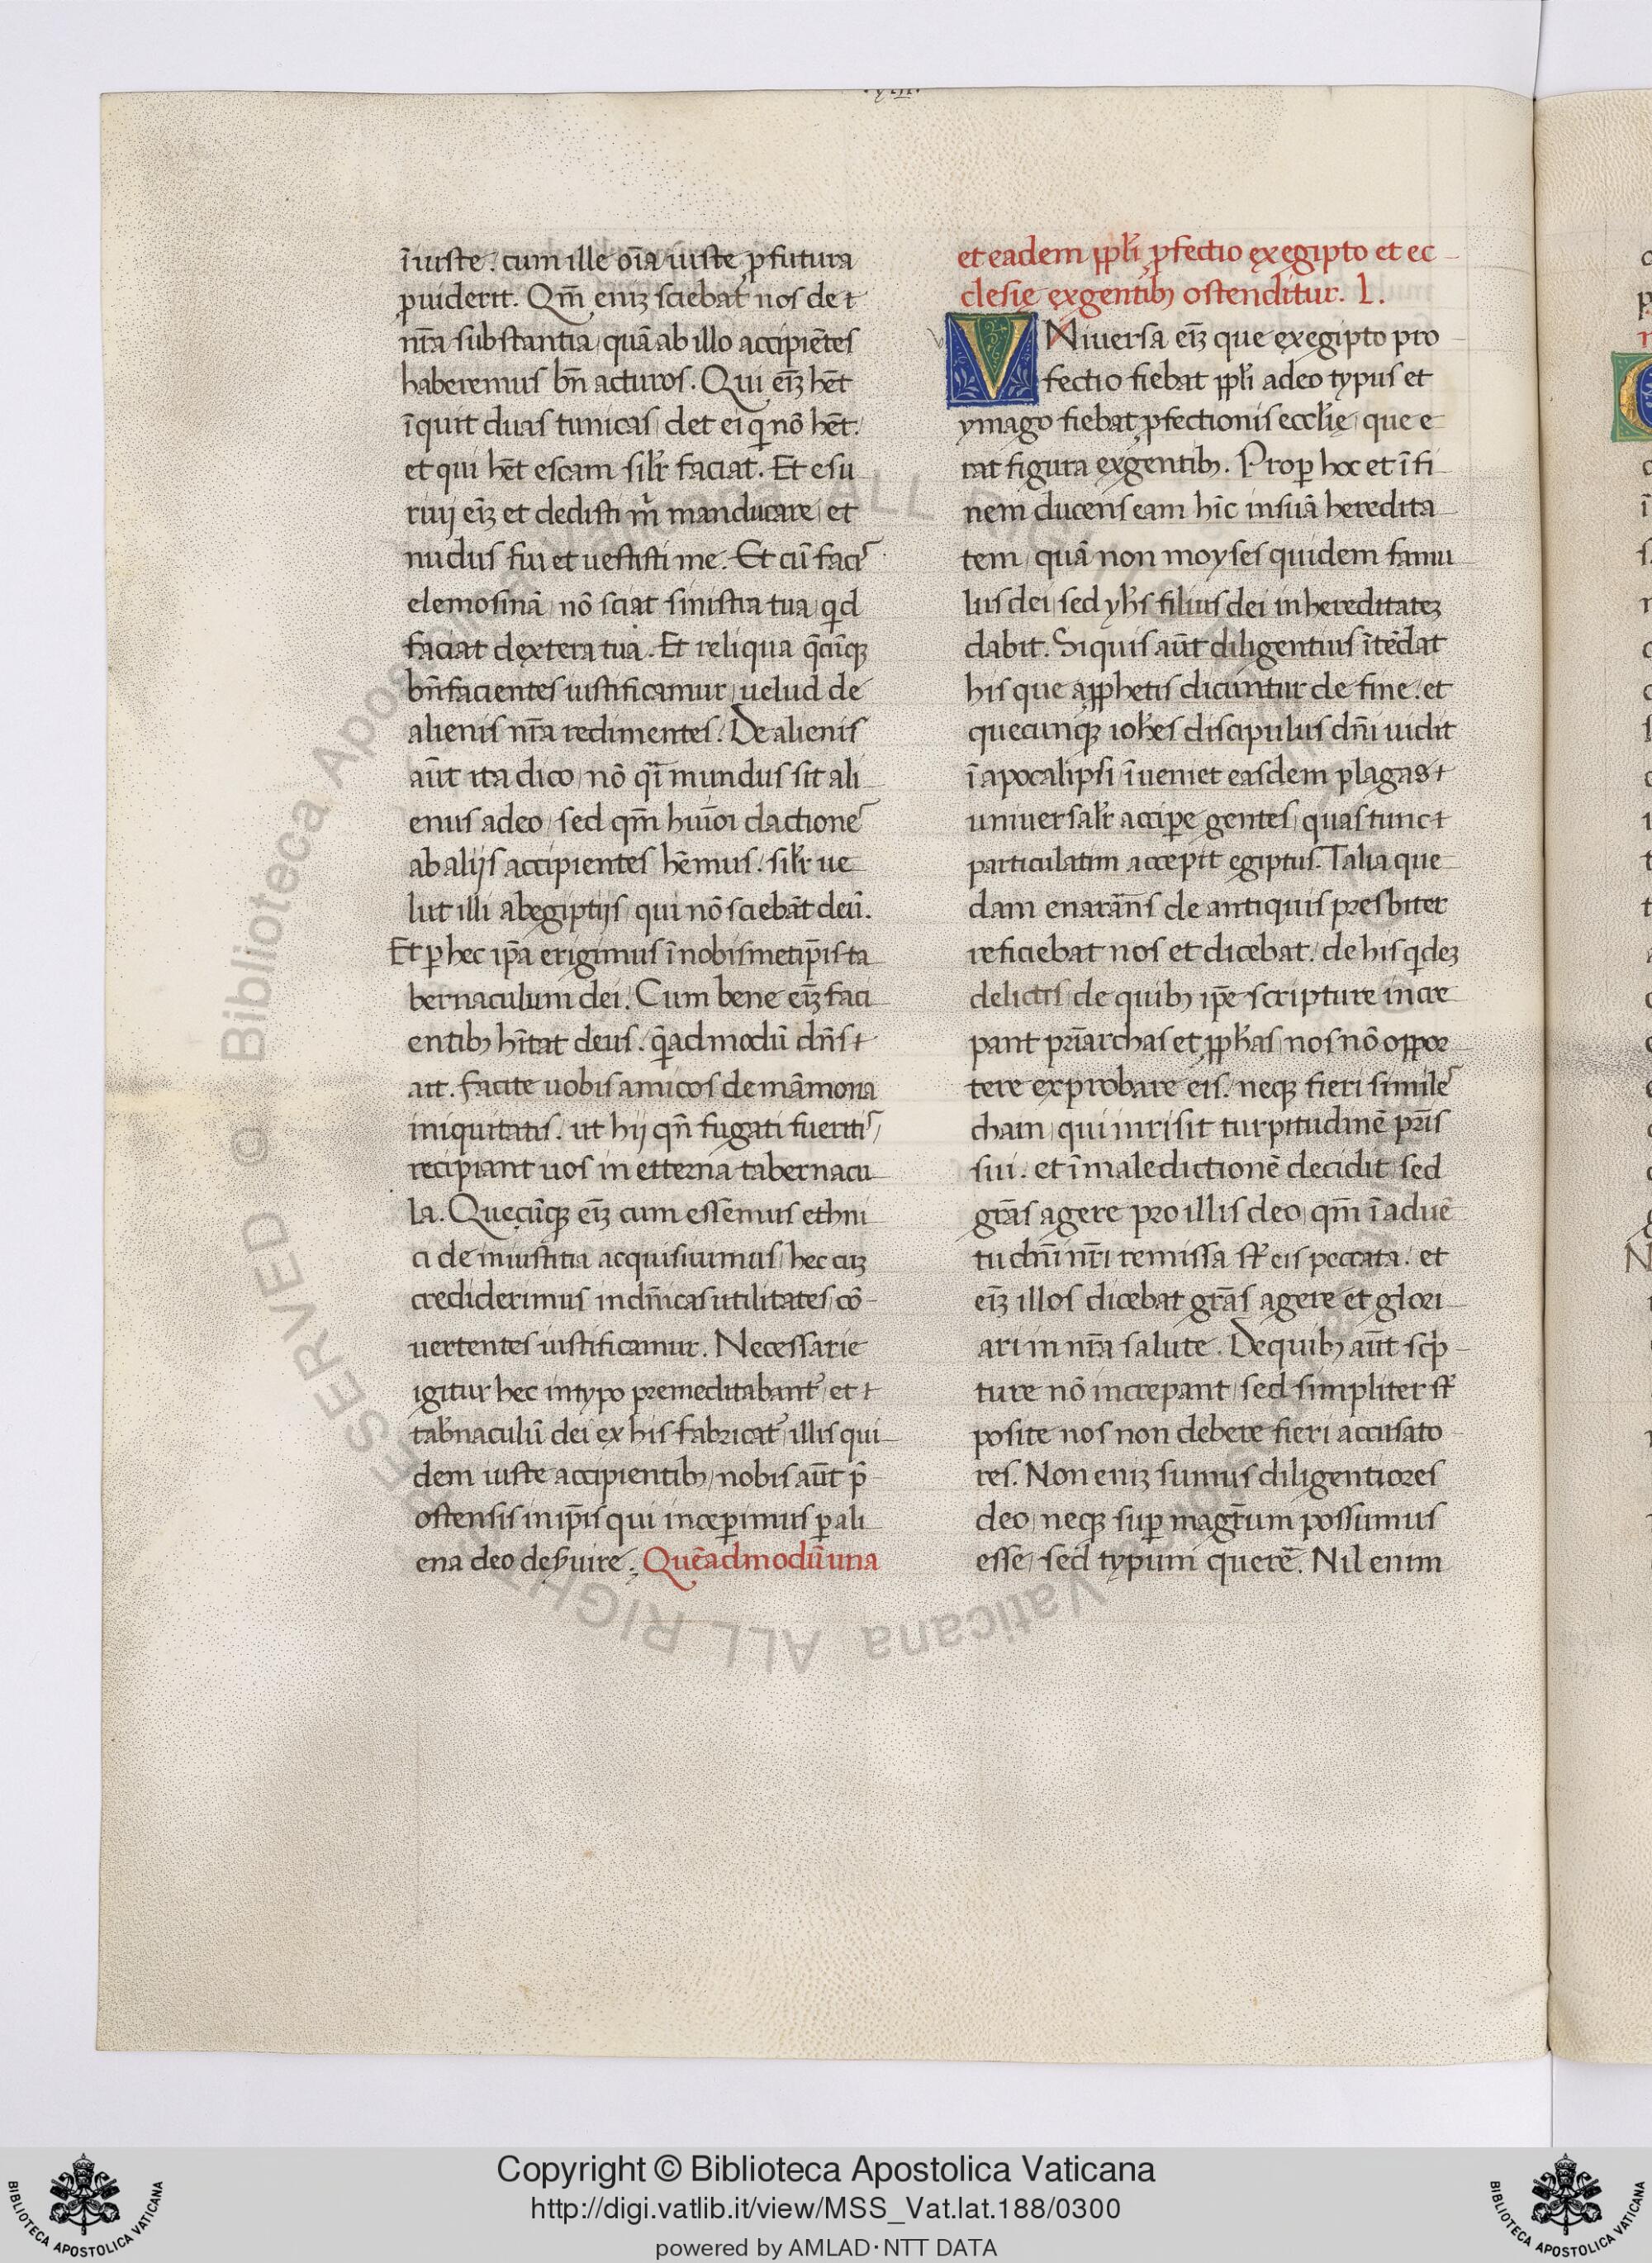 .XIII.
īiuste. cum ille oīa iuste ꝓfutura
ꝓuiderit. Qm̄ eniꝫ sciebat nos de t
nr̄a substantia quā ab illo accipiētes
haberemus bn̄ acturos. Qui eīꝫ hēt
īquit duas tunicas det ei qi nō hēt.
et qui hēt escam silr̄ faciat. Et esu
riuij eīꝫ et dedisti m̄ manducare et
nudus fui et uestisti me. Et cū facis
elemosinā nō sciat sinistra tua qd
faciat dextera tua. Et reliqua q̄cūqꝫ
bn̄facientes iustificamur uelud de
alienis nr̄a redimentes. De alienis
aūt ita dico nō qī mundus sit ali
enus adeo sed qm̄ huiōi dactiones
ab alijs accipientes hēmus. silr̄ ue
lut illi abegiptijs qui nō sciebāt deū.
Et ꝑ hec ip̄a erigimus ī nobismetip̄is ta
bernaculum dei. Cum bene eīꝫ faci
entibꝫ hītat deus. qēadmodū dn̄s t
ait. Facite uobis amicos de māmona
iniquitatis. ut hij qn̄ fugati fueritis
recipiant uos in etterna tabernacu
la. Quecūqꝫ eīꝫ cum essēmus ethni
ci de iniustitia acquisiuimus hec cuꝫ
crediderimus in dn̄icas utilitates cō
uertentes iustificamur. Necessarie
igitur hec intypo premeditabant᷑ et t
tab̄naculū dei ex his fabricat᷑ illis qui
dem iuste accipientibꝫ nobis aūt p̄
ostensis inip̄is qui inceꝑimus ꝑ ali
ena deo des̄uire. Quēadmodū una
et eadem ppl̄i ꝓfectio exegipto et ec
clesie exgentibꝫ ostenditur. L.
VNiuersa eīꝫ que exegipto pro
fectio fiebat ppl̄i adeo typus et
ymago fiebat ꝓfectionis eccl̄ie que e
rat figura exgentibꝫ. Proꝑ hoc et ī fi
nem ducens eam hīc insuā heredita
tem quā non moyses quidem famu
lus dei sed yhs̄ filius dei in hereditateꝫ
dabit. Siquis aūt diligentius ītēdat
his que aꝓphetis dicuntur de fine. et
quecunqꝫ ioh̄es discipulus dn̄i uidit
ī apocalipsi īueniet easdem plagas t
uniuersalr̄ acciꝑe gentes quas tunc t
particulatim accepit egiptus. Talia que
dam enarāns de antiquis presbiter
reficiebat nos et dicebat. de his qideꝫ
delictis de quibꝫ ip̄e scripture incre
pant pr̄iarchas et ꝓphas nos nō oppor
tere exprobare eis. neqꝫ fieri similes
cham qui inrisit turpitudinē pr̄is
sui. et ī maledictionē decidit sed
gr̄as agere pro illis deo qm̄ ī aduē
tu dn̄i nr̄i remissa st̄ eis peccata. et
eīꝫ illos dicebat gr̄as agere et glori
ari in nr̄a salute. De quibꝫ aūt scp̄
ture nō increpant sed simpliter st̄
posite nos non debere fieri accusato
res. Non eniꝫ sumus diligentiores
deo neqꝫ suꝑ magr̄um possumus
esse sed typum querē. Nil enim
Copyright © Biblioteca Apostolica Vaticana
http://digi.vatlib.it/view/MSS_Vat.lat.188/0300
powered by AMLAD·NTT DATA
BIBLIOTECA APOSTOLICA VATICANA
BIBLIOTECA APOSTOLICA VATICANA